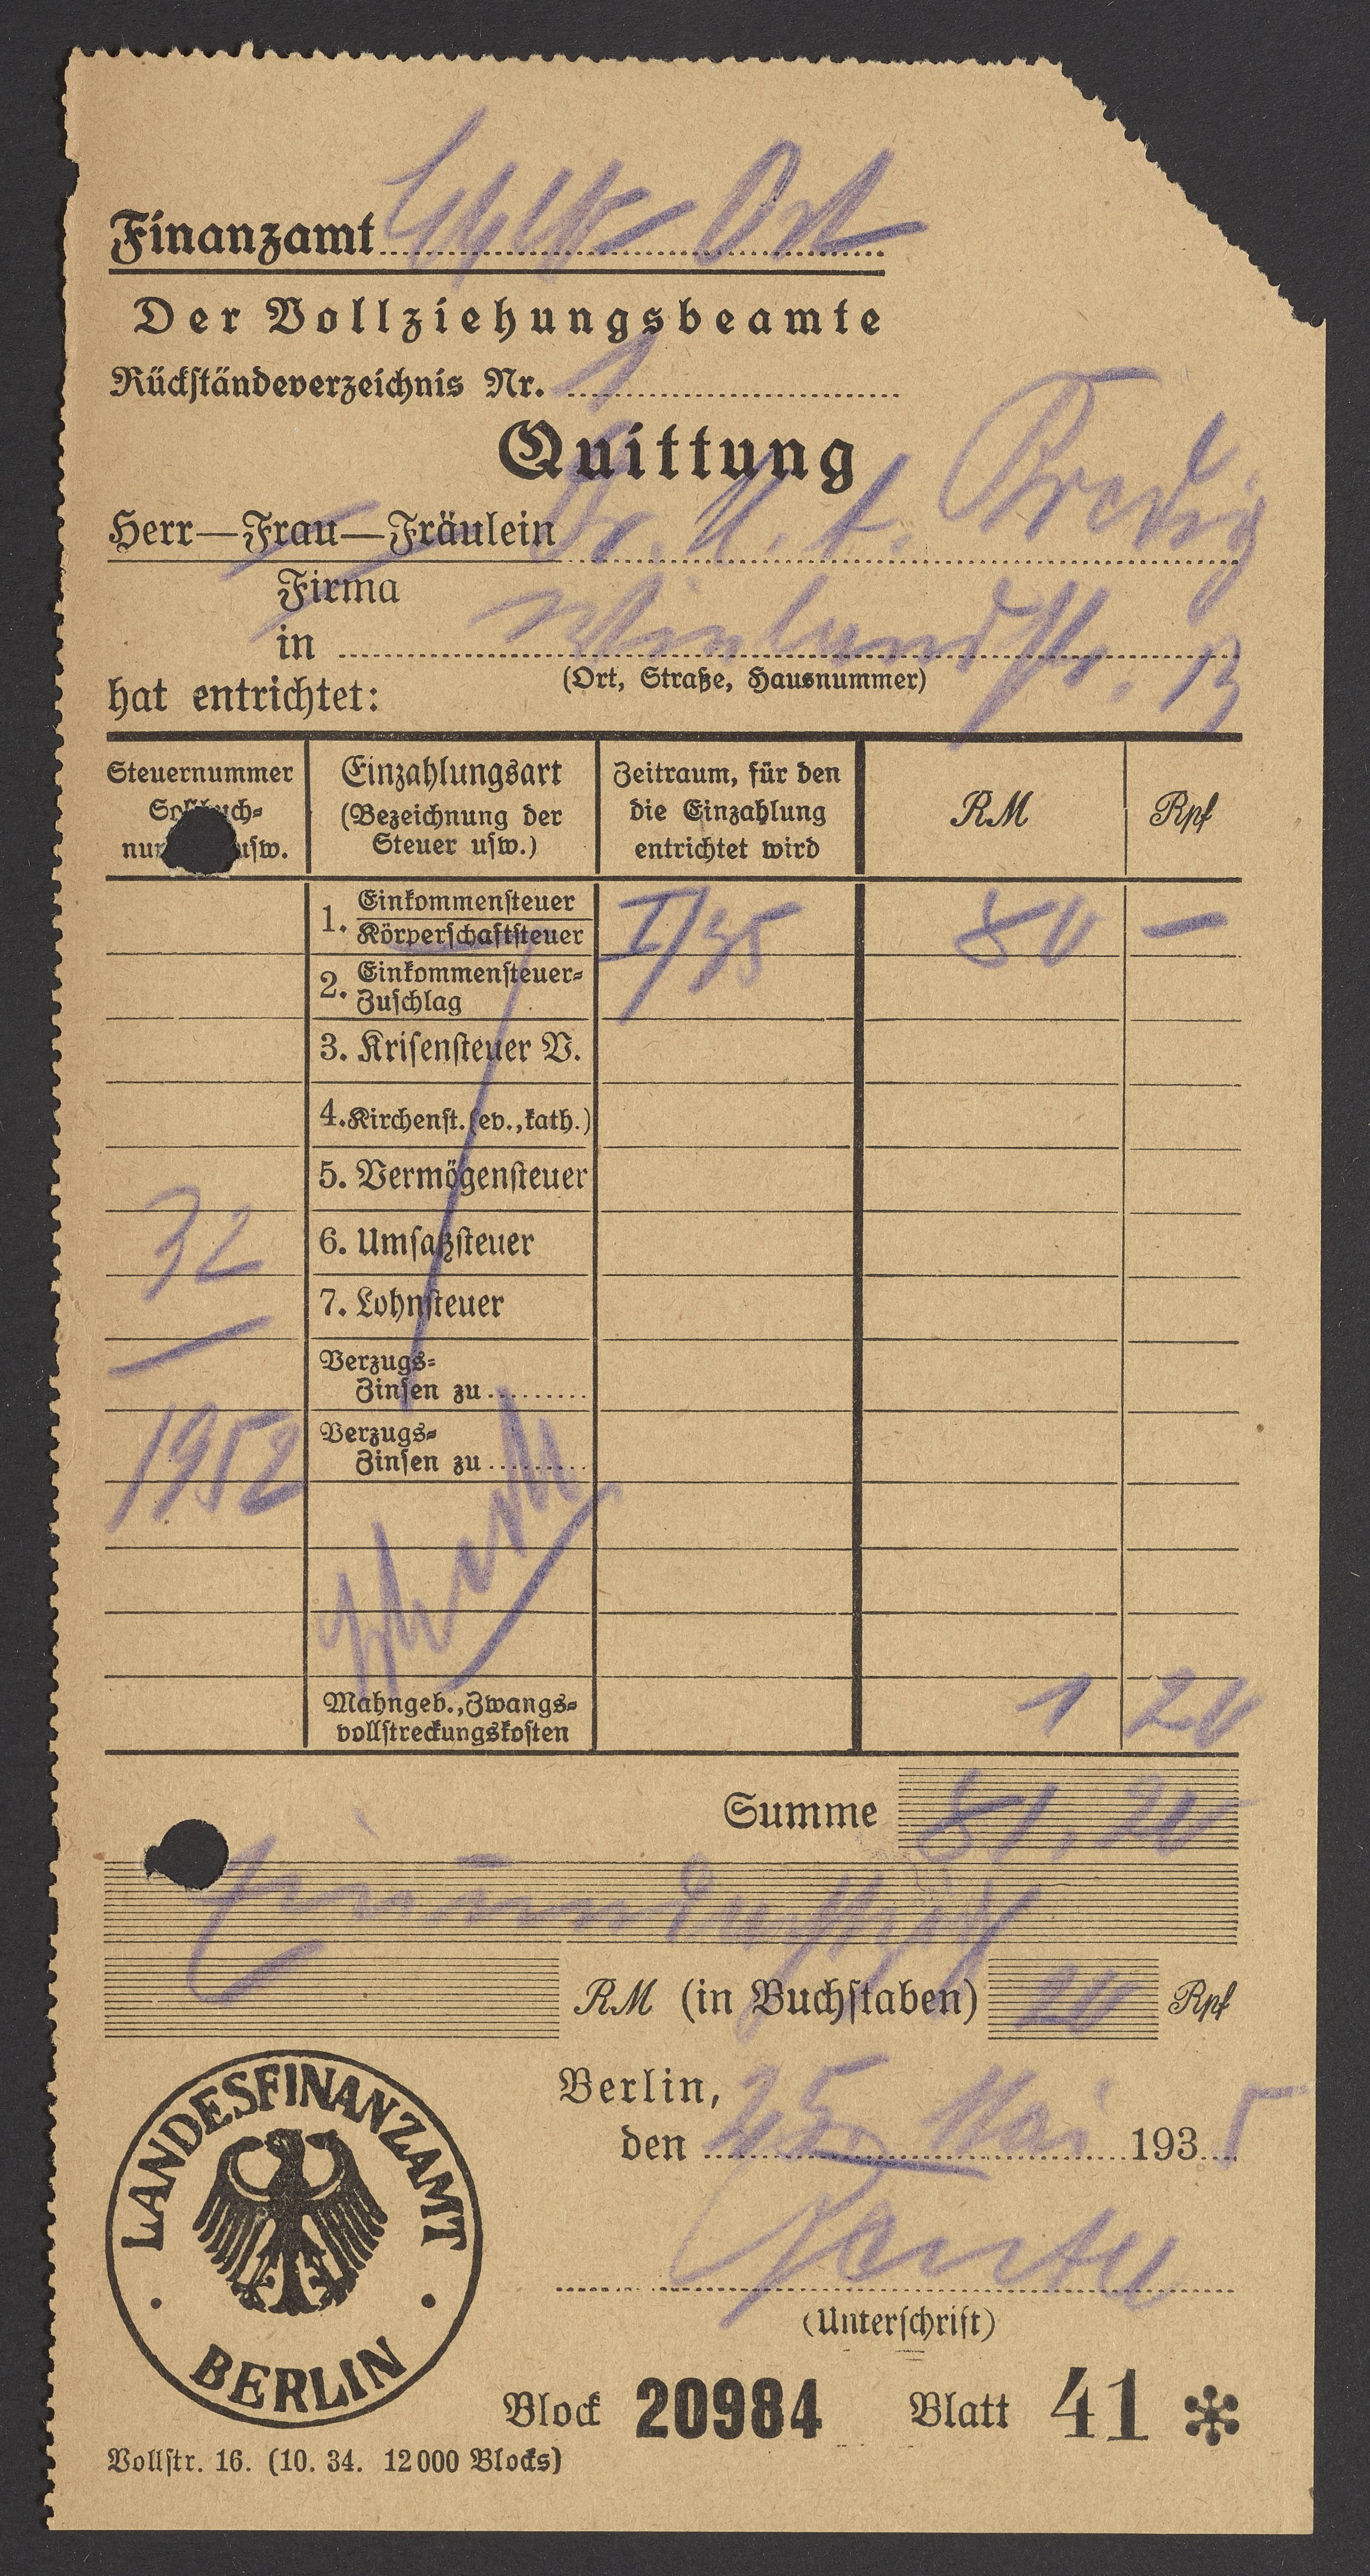 Finanzamt Ost
Der Vollziehungsbeamte
Rückständeverzeichnis Nr. 1
Quittung
Herr—Frau—Fräulein Dr. M. A. Bredig
Firma
in Wielandstr. 13
(Ort, Straße, Hausnummer)
hat entrichtet:
Steuernummer Einzahlungsart Zeitraum, für den
Sollbuch- (Bezeichnung der die Einzahlung RM Rpf
nummer usw. Steuer usw.) entrichtet wird
1. Einkommensteuer I/35 80 —
Körperschaftsteuer
2. Einkommensteuer-
Zuschlag
3. Krisensteuer V.
4. Kirchenst. (ev., kath.)
5. Vermögensteuer
32 6. Umsatzsteuer
7. Lohnsteuer
Verzugs-
Zinsen zu
1952 Verzugs-
Zinsen zu
Mahngeb., Zwangs- 1 20
vollstreckungskosten
Summe 81,20
Einundachtzig
RM (in Buchstaben) 20 Rpf
Berlin,
den 25. Mai 1935
(Unterschrift)
LANDESFINANZAMT
BERLIN
Block 20984 Blatt 41 *
Vollstr. 16. (10. 34. 12000 Blocks)